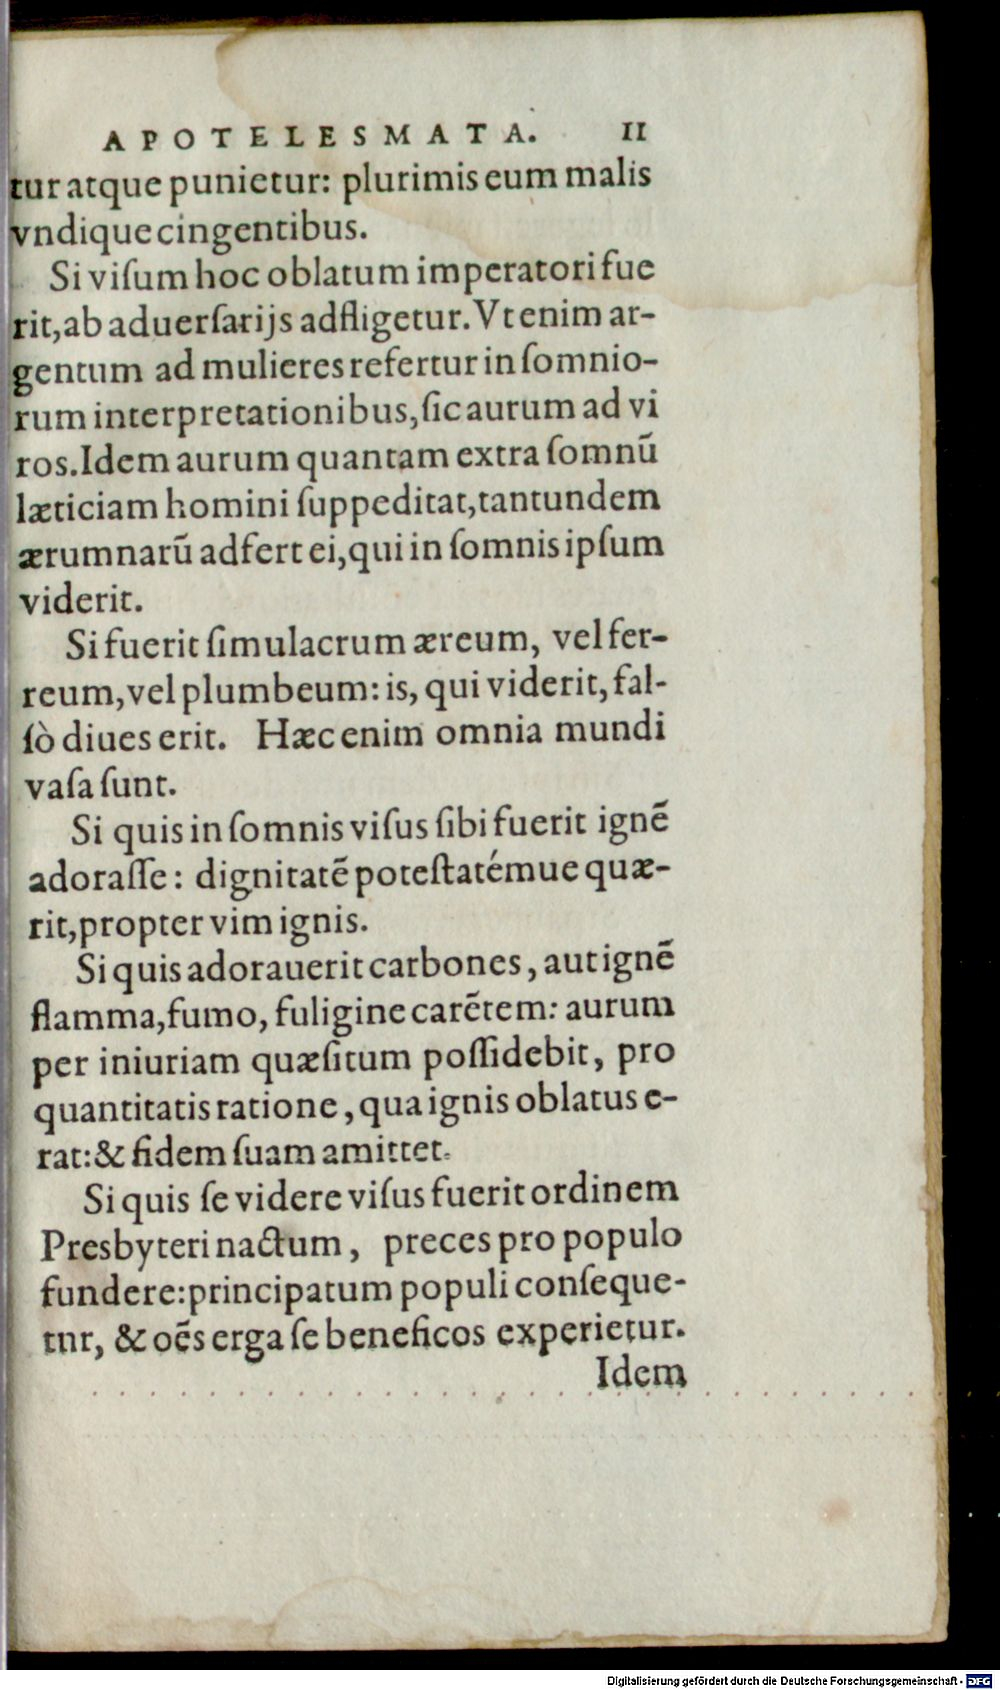 APOTELESMATA. 11
tur atque punietur: plurimis eum malis
vndique cingentibus.
Si viſum hoc oblatum imperatori fue
rit, ab aduerſarijs adfligetur. Vt enim ar-
gentum ad mulieres refertur in ſomnio-
rum interpretationibus, ſic aurum ad vi
ros. Idem aurum quantam extra ſomnũ
læticiam homini ſuppeditat, tantundem
ærumnarũ adfert ei, qui in ſomnis ipſum
viderit.
Si fuerit ſimulacrum æreum, vel fer-
reum, vel plumbeum: is, qui viderit, fal-
ſò diues erit. Hæc enim omnia mundi
vaſa ſunt.
Si quis in ſomnis viſus ſibi fuerit ignẽ
adoraſſe: dignitatẽ poteſtatémue quæ-
rit, propter vim ignis.
Si quis adorauerit carbones, aut ignẽ
flamma, fumo, fuligine carẽtem: aurum
per iniuriam quæſitum poſſidebit, pro
quantitatis ratione, qua ignis oblatus e-
rat: & fidem ſuam amittet.
Si quis ſe videre viſus fuerit ordinem
Presbyteri nactum, preces pro populo
fundere: principatum populi conſeque-
tnr, & oẽs erga ſe beneficos experietur.
Idem
Digitalisierung gefördert durch die Deutsche Forschungsgemeinschaft - DFG